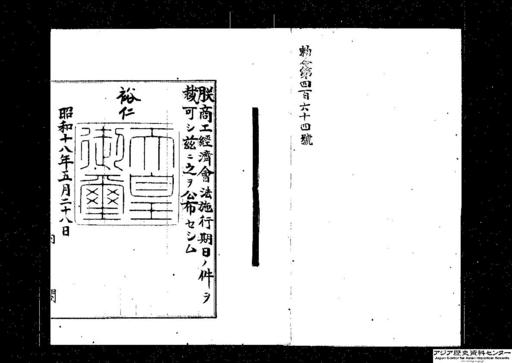 勅令第四百六十四號
朕商工經濟會法施行期日ノ件ヲ
裁可シ茲ニ之ヲ公布セシム
裕仁
天皇
御璽
昭和十八年五月二十八日
内
閣
アジア歴史資料センター
Japan Center for Asian Historical Records